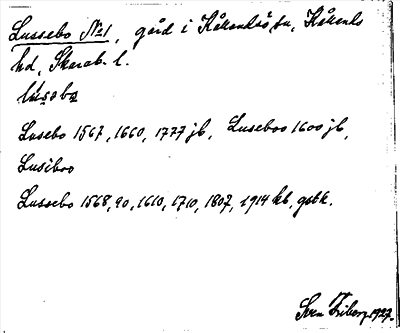 Lussebo №1, gård i Kållands-ö, sn, Kållands
hd, Skarab. l.
Lusebo 1567, 1660, 1777 jb, Luseboo 1600 jb,
Lusiboo
Lussebo 1568, 90, 1610, 1710, 1807, 1914 kb, gsbk.
Sven Friberg 1927.